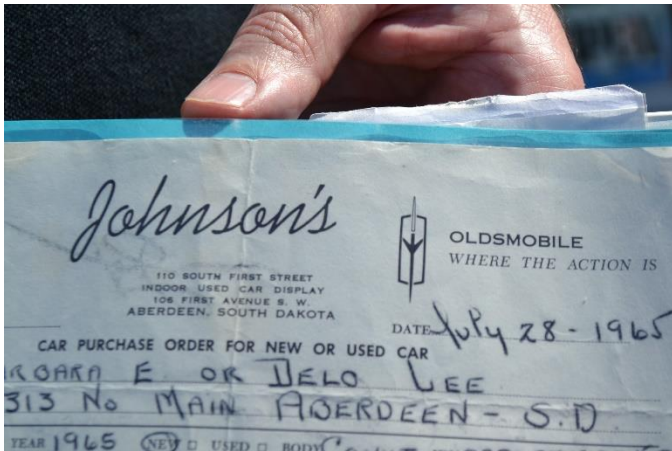 Johnson's
110 SOUTH FIRST STREET
INDOOR USED CAR DISPLAY
106 FIRST AVENUE S. W.
ABERDEEN, SOUTH DAKOTA
OLDSMOBILE
WHERE THE ACTION IS
DATE July 28 - 1965
CAR PURCHASE ORDER FOR NEW OR USED CAR
RBARA E OR DELO LEE
313 No MAIN ABERDEEN - S.D
YEAR 1965 NEW USED BODY